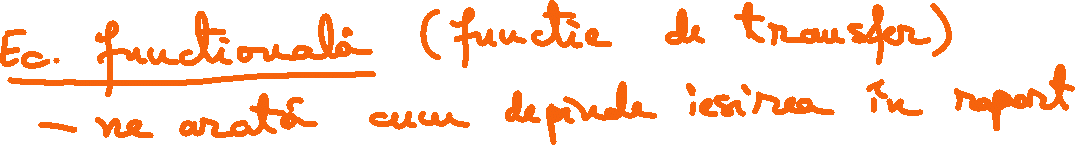 Ec. functională (functie de transfer)
- ne arată cum depinde iesirea în raport